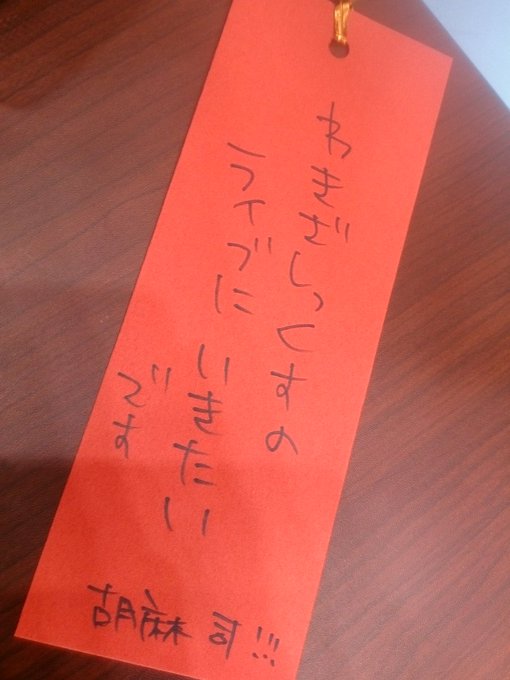 わきざしっくすの
ライブに いきたい
です
胡麻 司!!!